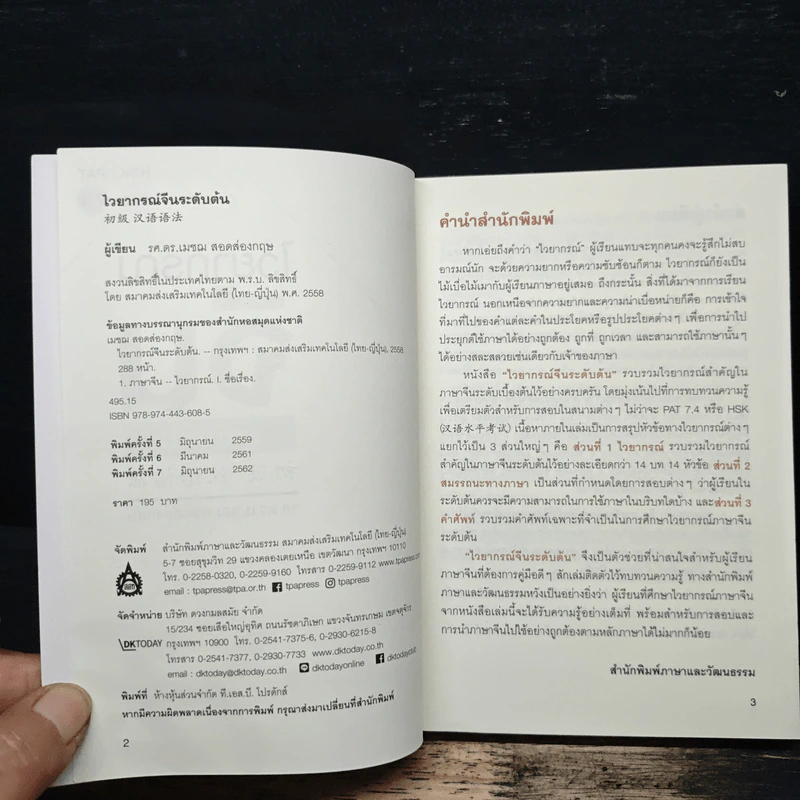 ไวยากรณ์จีนระดับต้น
初级 汉语语法
ผู้เขียน รศ.ดร.เมชฌ สอดส่องกฤษ
สงวนลิขสิทธิ์ในประเทศไทยตาม พ.ร.บ. ลิขสิทธิ์
โดย สมาคมส่งเสริมเทคโนโลยี (ไทย-ญี่ปุ่น) พ.ศ. 2558
ข้อมูลทางบรรณานุกรมของสำนักหอสมุดแห่งชาติ
เมชฌ สอดส่องกฤษ.
ไวยากรณ์จีนระดับต้น. -- กรุงเทพฯ : สมาคมส่งเสริมเทคโนโลยี (ไทย-ญี่ปุ่น), 2558.
288 หน้า.
1. ภาษาจีน -- ไวยากรณ์. I. ชื่อเรื่อง.
495.15
ISBN 978-974-443-608-5
พิมพ์ครั้งที่ 5 มิถุนายน 2559
พิมพ์ครั้งที่ 6 มีนาคม 2561
พิมพ์ครั้งที่ 7 มิถุนายน 2562
ราคา 195 บาท
จัดพิมพ์ สำนักพิมพ์ภาษาและวัฒนธรรม สมาคมส่งเสริมเทคโนโลยี (ไทย-ญี่ปุ่น)
5-7 ซอยสุขุมวิท 29 แขวงคลองเตยเหนือ เขตวัฒนา กรุงเทพฯ 10110
โทร. 0-2258-0320, 0-2259-9160 โทรสาร 0-2259-9112 www.tpapress.com
email : tpapress@tpa.or.th tpapress @tpapress
จัดจำหน่าย บริษัท ดวงกมลสมัย จำกัด
15/234 ซอยเสือใหญ่อุทิศ ถนนรัชดาภิเษก แขวงจันทรเกษม เขตจตุจักร
\DKTODAY กรุงเทพฯ 10900 โทร. 0-2541-7375-6, 0-2930-6215-8
โทรสาร 0-2541-7377, 0-2930-7733 www.dktoday.co.th
email : dktoday@dktoday.co.th dktodayonline
พิมพ์ที่ ห้างหุ้นส่วนจำกัด ที.เอส.บี. โปรดักส์
หากมีความผิดพลาดเนื่องจากการพิมพ์ กรุณาส่งมาเปลี่ยนที่สำนักพิมพ์
2
คำนำสำนักพิมพ์
หากเอ่ยถึงคำว่า "ไวยากรณ์" ผู้เรียนแทบจะทุกคนคงจะรู้สึกไม่สบ
อารมณ์นัก จะด้วยความยากหรือความซับซ้อนก็ตาม ไวยากรณ์ก็ยังเป็น
ไม้เบื่อไม้เมากับผู้เรียนภาษาอยู่เสมอ ถึงกระนั้น สิ่งที่ได้มาจากการเรียน
ไวยากรณ์ นอกเหนือจากความยากและความน่าเบื่อหน่ายก็คือ การเข้าใจ
ที่มาที่ไปของคำแต่ละคำในประโยคหรือรูปประโยคต่างๆ เพื่อการนำไป
ประยุกต์ใช้ภาษาได้อย่างถูกต้อง ถูกที่ ถูกเวลา และสามารถใช้ภาษานั้นๆ
ได้อย่างสละสลวยเช่นเดียวกับเจ้าของภาษา
หนังสือ "ไวยากรณ์จีนระดับต้น" รวบรวมไวยากรณ์สำคัญใน
ภาษาจีนระดับเบื้องต้นไว้อย่างครบครัน โดยมุ่งเน้นไปที่การทบทวนความรู้
เพื่อเตรียมตัวสำหรับการสอบในสนามต่างๆ ไม่ว่าจะ PAT 7.4 หรือ HSK
(汉语水平考试) เนื้อหาภายในเล่มเป็นการสรุปหัวข้อทางไวยากรณ์ต่างๆ
แยกไว้เป็น 3 ส่วนใหญ่ๆ คือ ส่วนที่ 1 ไวยากรณ์ รวบรวมไวยากรณ์
สำคัญในภาษาจีนระดับต้นไว้อย่างละเอียดกว่า 14 บท 14 หัวข้อ ส่วนที่ 2
สมรรถนะทางภาษา เป็นส่วนที่กำหนดโดยการสอบต่างๆ ว่าผู้เรียนใน
ระดับต้นควรจะมีความสามารถในการใช้ภาษาในบริบทใดบ้าง และส่วนที่ 3
คำศัพท์ รวบรวมคำศัพท์เฉพาะที่จำเป็นในการศึกษาไวยากรณ์ภาษาจีน
ระดับต้น
"ไวยากรณ์จีนระดับต้น" จึงเป็นตัวช่วยที่น่าสนใจสำหรับผู้เรียน
ภาษาจีนที่ต้องการคู่มือดีๆ สักเล่มติดตัวไว้ทบทวนความรู้ ทางสำนักพิมพ์
ภาษาและวัฒนธรรมหวังเป็นอย่างยิ่งว่า ผู้เรียนที่ศึกษาไวยากรณ์ภาษาจีน
จากหนังสือเล่มนี้จะได้รับความรู้อย่างเต็มที่ พร้อมสำหรับการสอบและ
การนำภาษาจีนไปใช้อย่างถูกต้องตามหลักภาษาได้ไม่มากก็น้อย
สำนักพิมพ์ภาษาและวัฒนธรรม
3